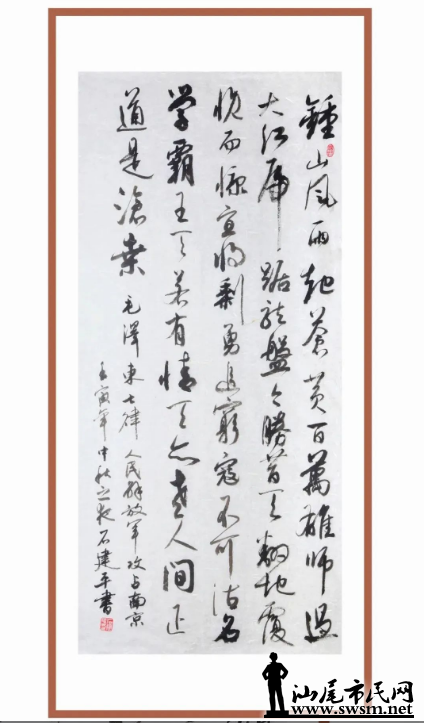 鍾山风雨起蒼黄百萬雄師過
大江虎踞龙盤今勝昔天翻地覆
慨而慷宜将剩勇追窮寇不可沽名
學霸王天若有情天亦老人間正
道是滄桑 毛澤東七律 人民解放军攻占南京
壬寅年中秋之夜石建平書
汕尾市民网
www.swsm.net